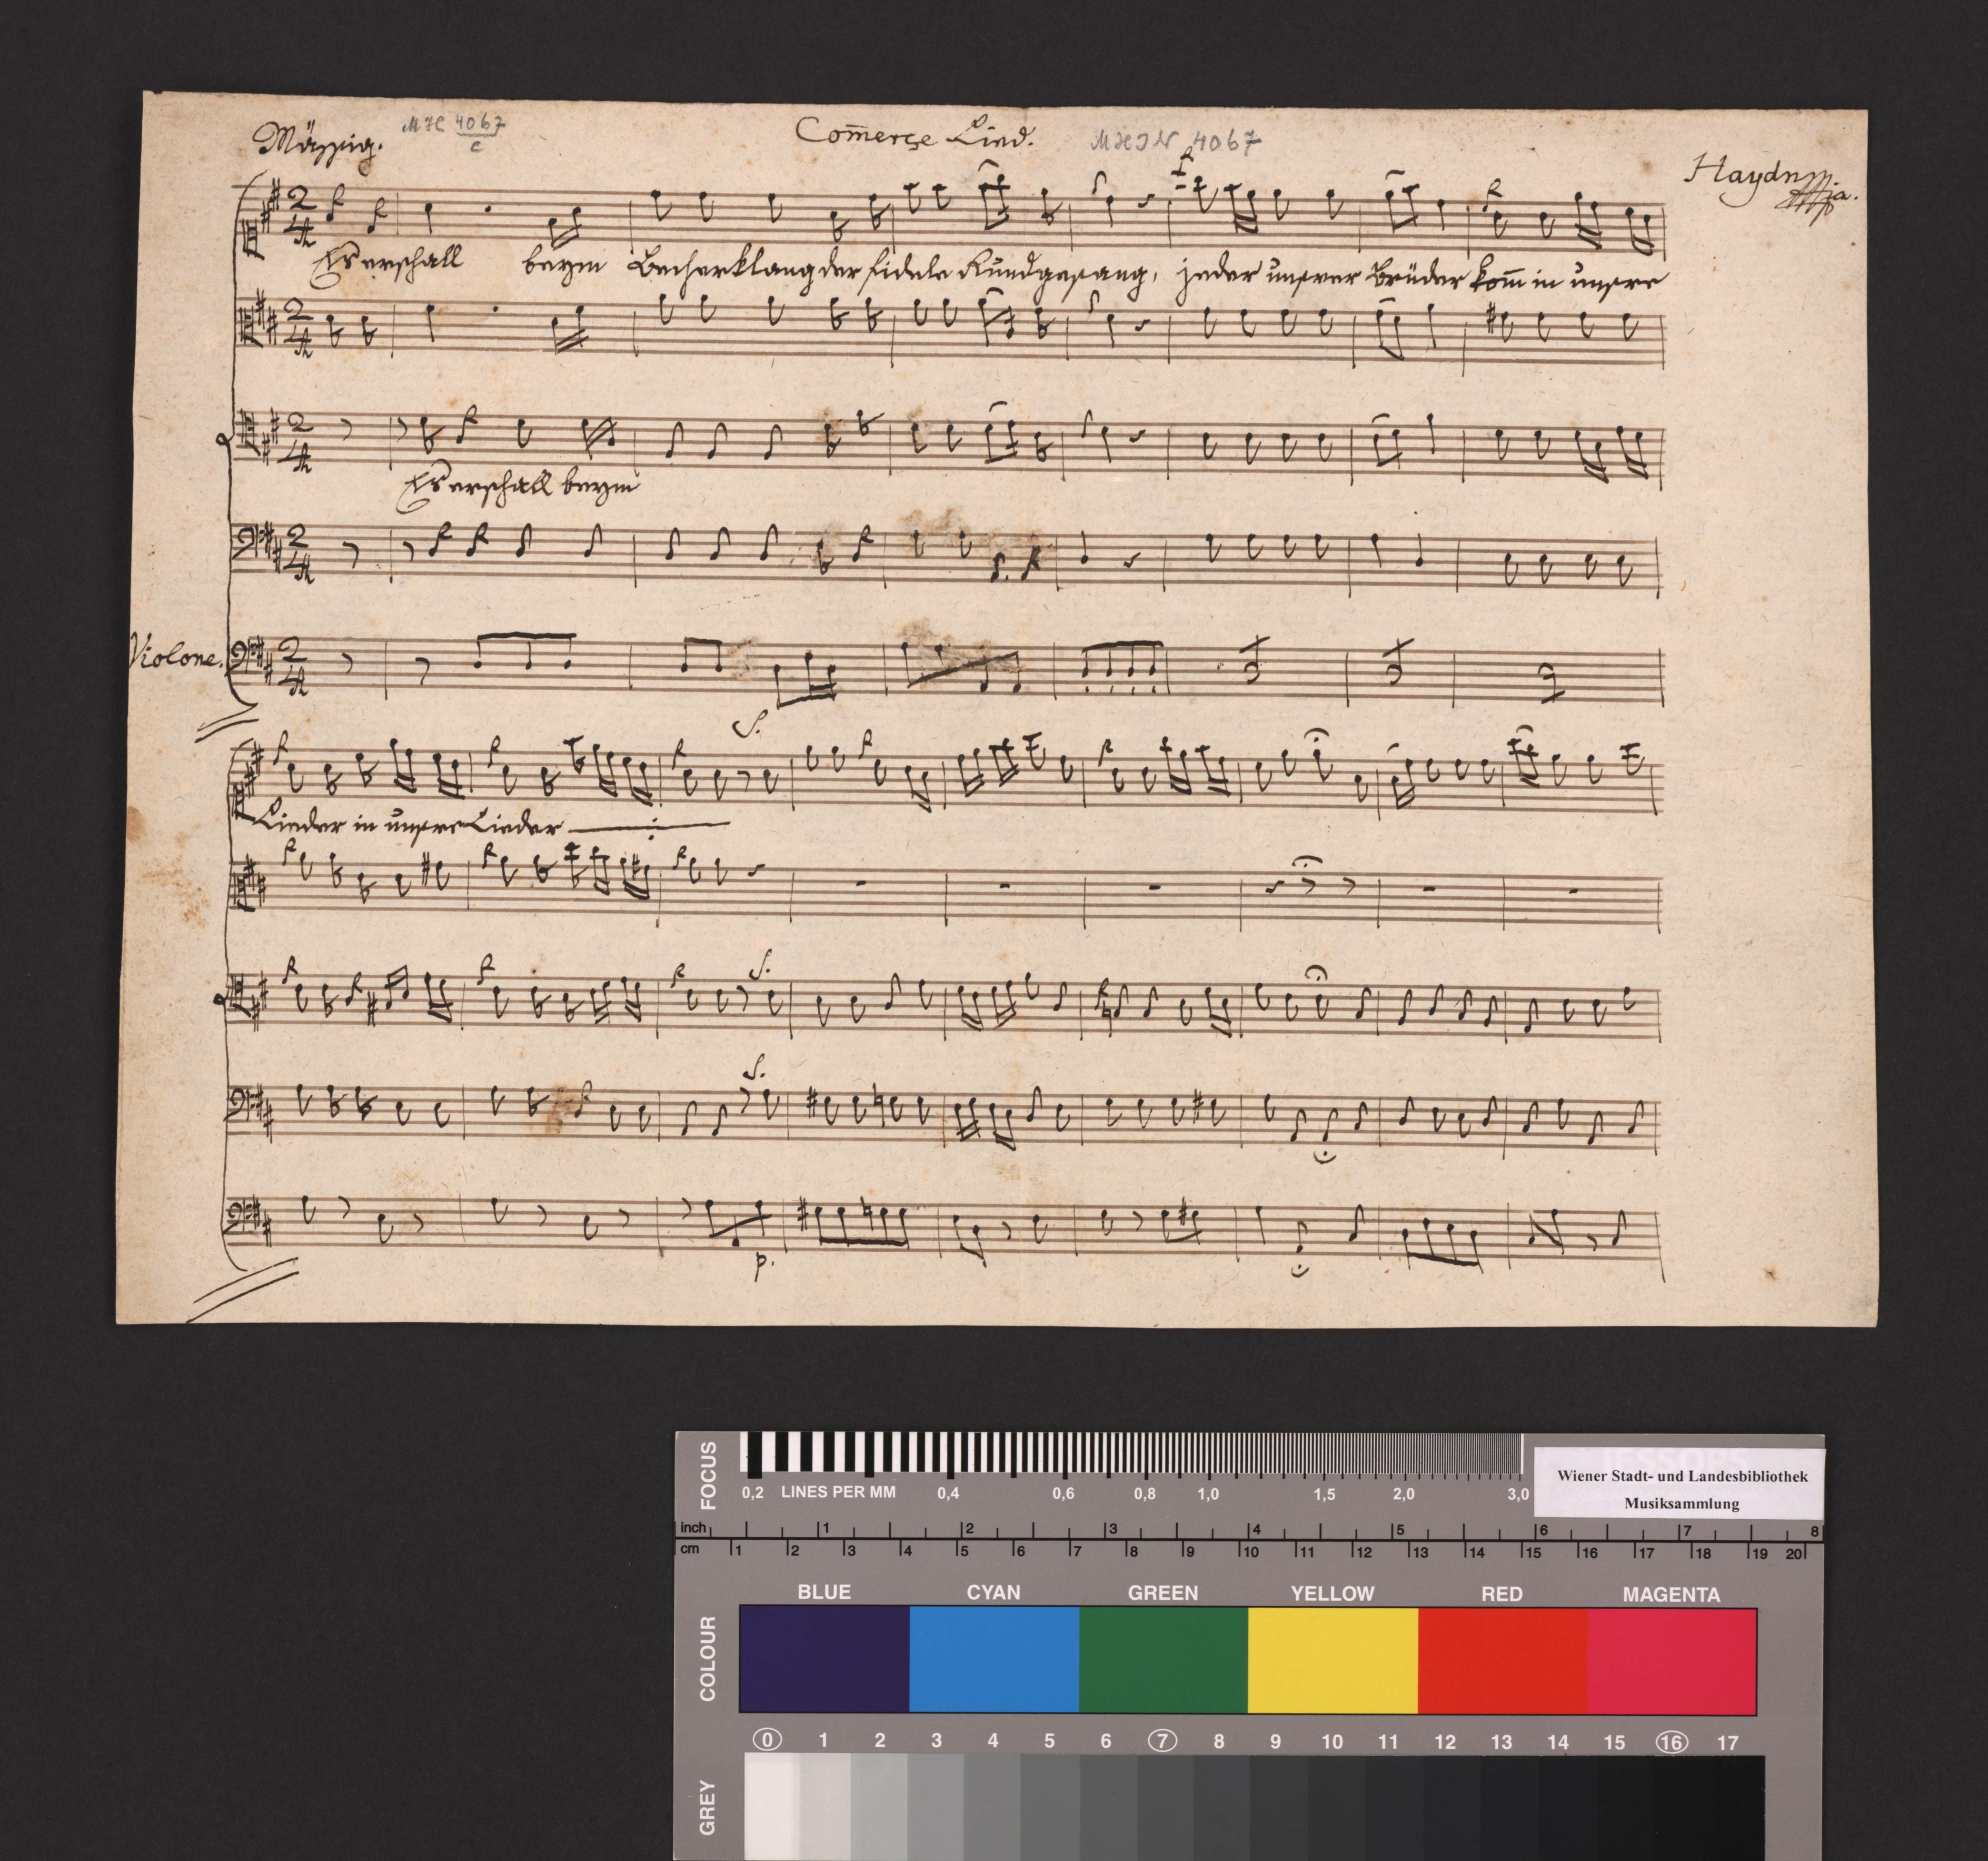 Mässig.
MHc 4067
c
Com̅erçe Lied.
MHIN 4067
Haydn mpia.
Es erschall beym Becherklang der fidele Rundgesang, jeder unsrer Brüder kom̅ in unsre
Es erschall beym
Violone.
Lieder in unsre Lieder
p.
FOCUS
0,2 LINES PER MM 0,4 0,6 0,8 1,0 1,5 2,0 3,0
Wiener Stadt- und Landesbibliothek
Musiksammlung
inch 1 2 3 4 5 6 7 8
cm 1 2 3 4 5 6 7 8 9 10 11 12 13 14 15 16 17 18 19 20
COLOUR
BLUE CYAN GREEN YELLOW RED MAGENTA
0 1 2 3 4 5 6 7 8 9 10 11 12 13 14 15 16 17
GREY